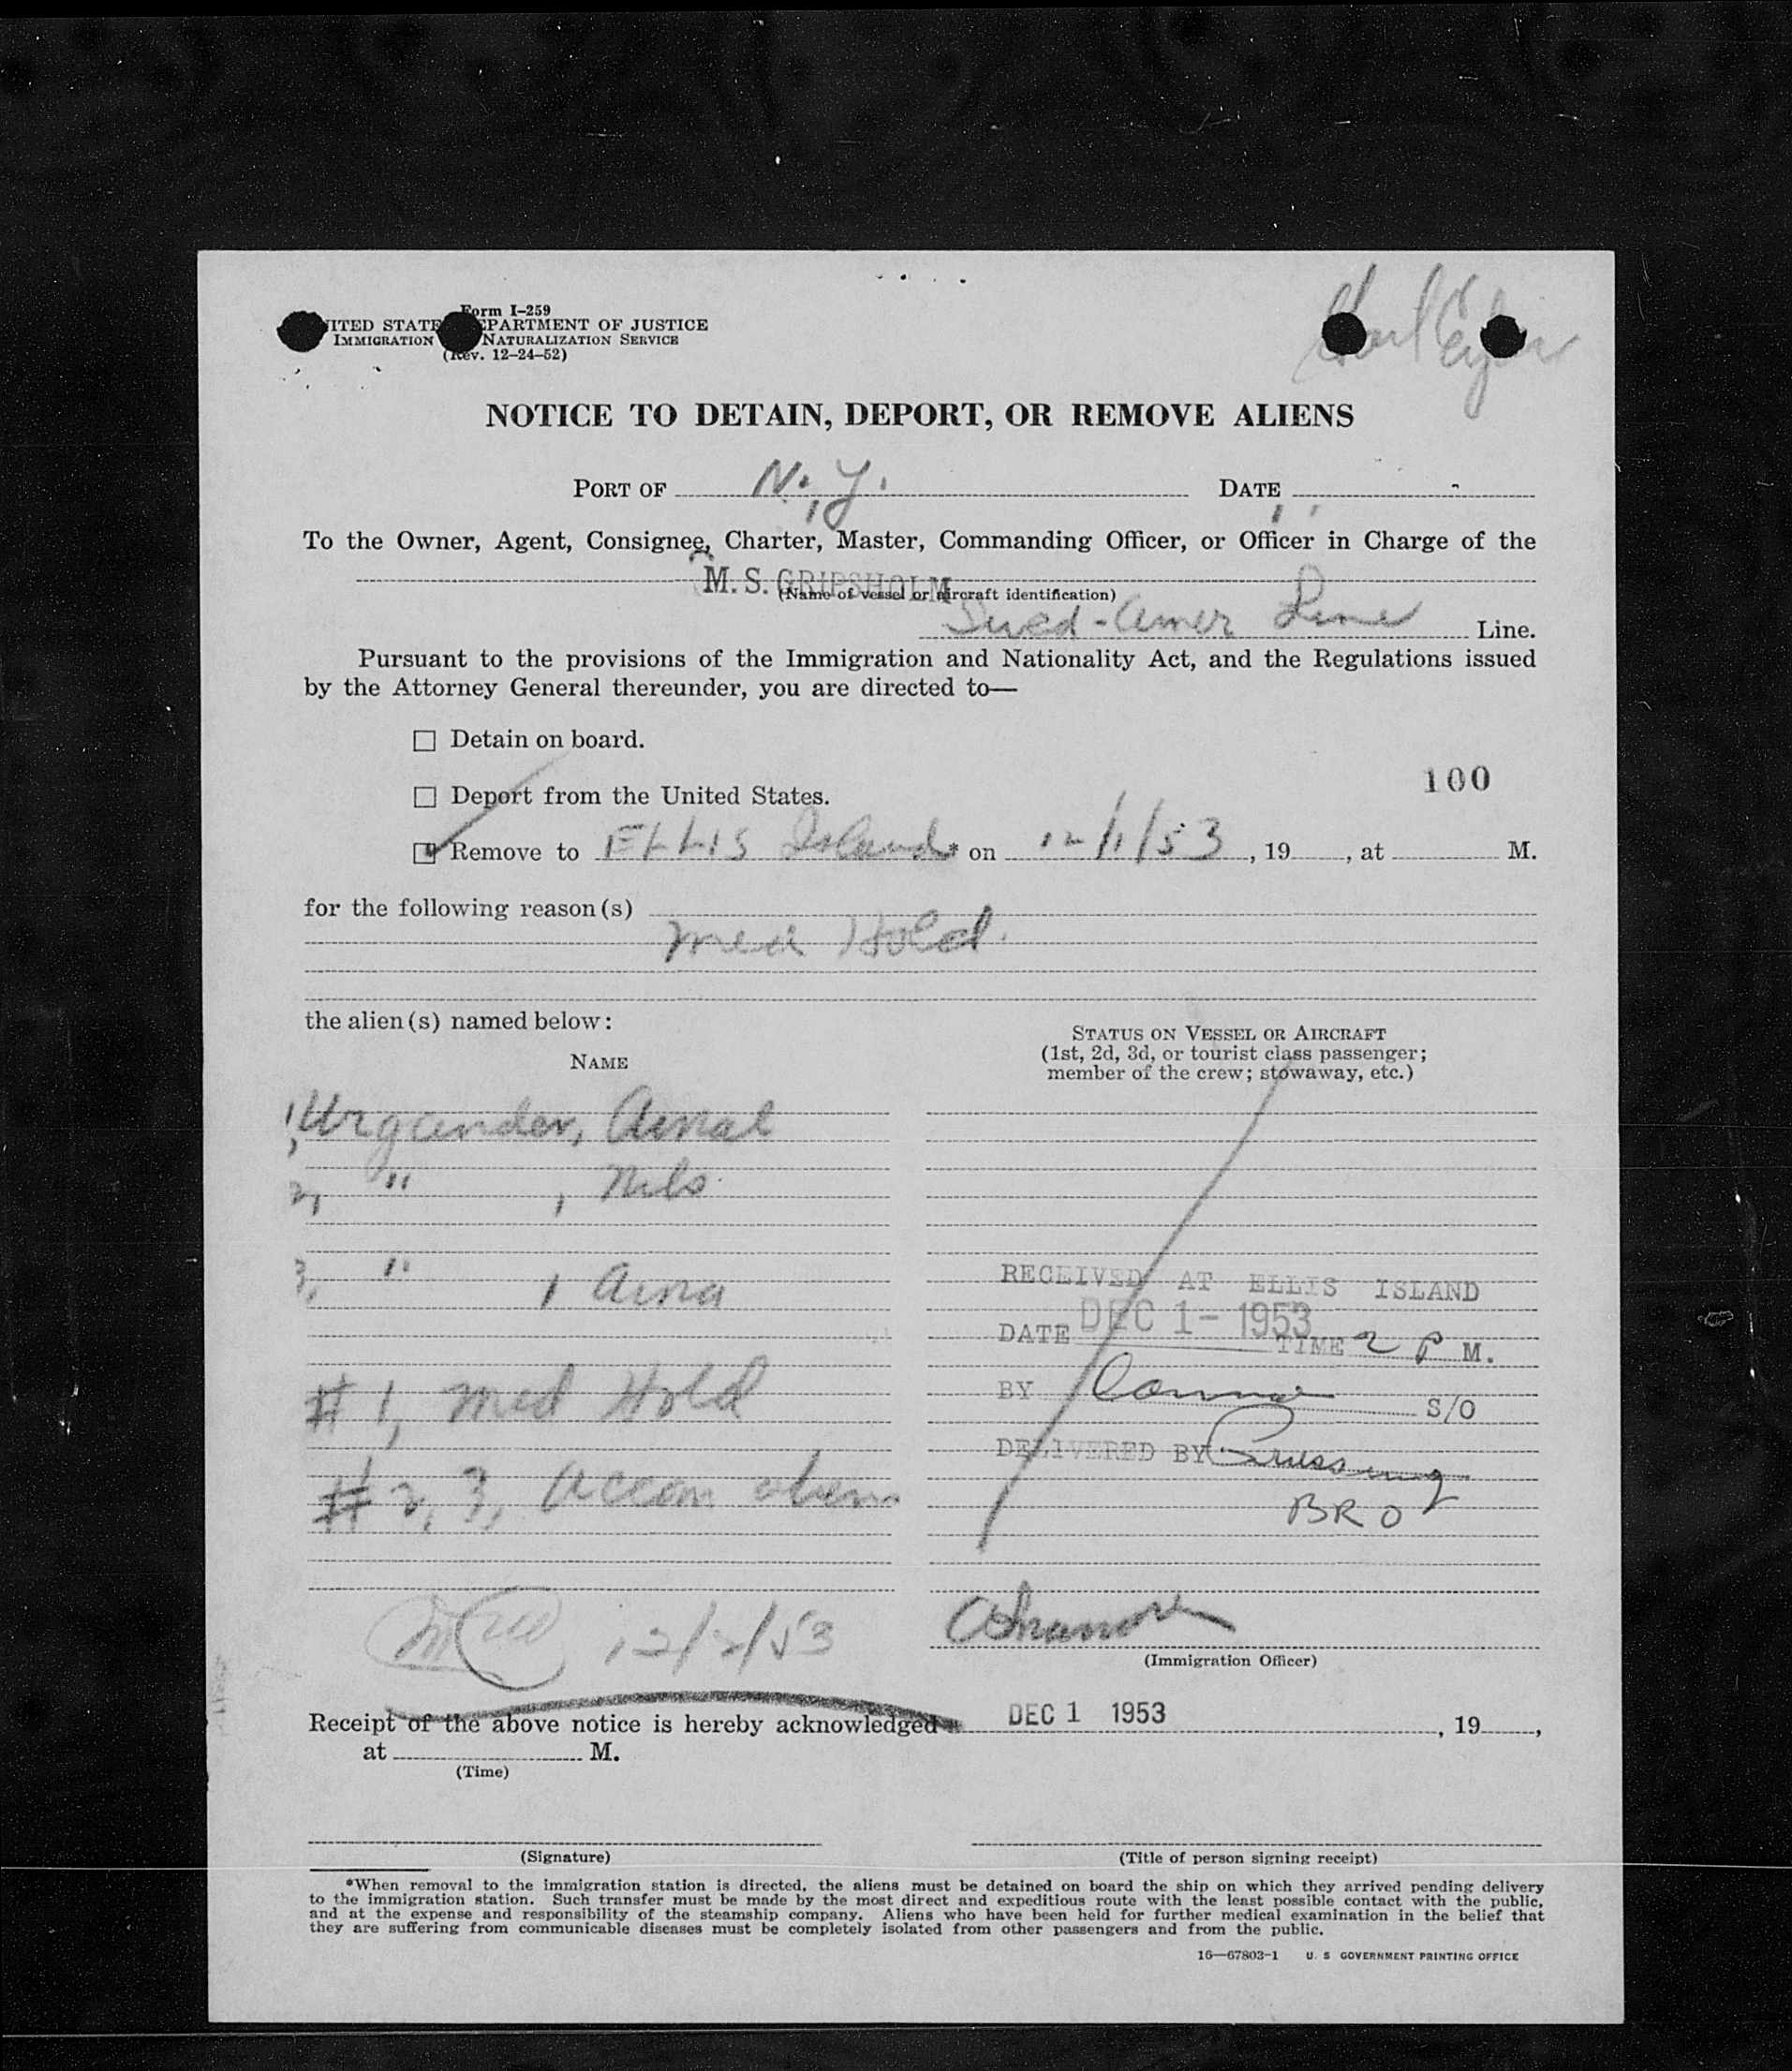 Form I-259
UNITED STATES DEPARTMENT OF JUSTICE
IMMIGRATION NATURALIZATION SERVICE
(Rev. 12-24-52)
NOTICE TO DETAIN, DEPORT, OR REMOVE ALIENS
PORT OF N.Y. DATE
To the Owner, Agent, Consignee, Charter, Master, Commanding Officer, or Officer in Charge of the
M. S. GRIPSHOLM
(Name of vessel or aircraft identification)
Swed-Amer Line Line.
Pursuant to the provisions of the Immigration and Nationality Act, and the Regulations issued
by the Attorney General thereunder, you are directed to—
☐ Detain on board.
100
☐ Deport from the United States.
☐ Remove to ELLIS Island* on 12/1/53, 19, at M.
for the following reason(s)
Med Hold.
the alien(s) named below:
STATUS ON VESSEL OR AIRCRAFT
(1st, 2d, 3d, or tourist class passenger;
member of the crew; stowaway, etc.)
NAME
1, Urgander,
2, " , Nils
3, " , Aina
RECEIVED AT ELLIS ISLAND
DATE DEC 1- 1953 TIME 2 P M.
BY S/O
# 1, Med Hold
DELIVERED BY
# 2, 3, Accom alien
BRO
12/2/53
(Immigration Officer)
Receipt of the above notice is hereby acknowledged DEC 1 1953, 19,
at M.
(Time)
(Signature) (Title of person signing receipt)
*When removal to the immigration station is directed, the aliens must be detained on board the ship on which they arrived pending delivery
to the immigration station. Such transfer must be made by the most direct and expeditious route with the least possible contact with the public,
and at the expense and responsibility of the steamship company. Aliens who have been held for further medical examination in the belief that
they are suffering from communicable diseases must be completely isolated from other passengers and from the public.
16—67803-1 U. S GOVERNMENT PRINTING OFFICE